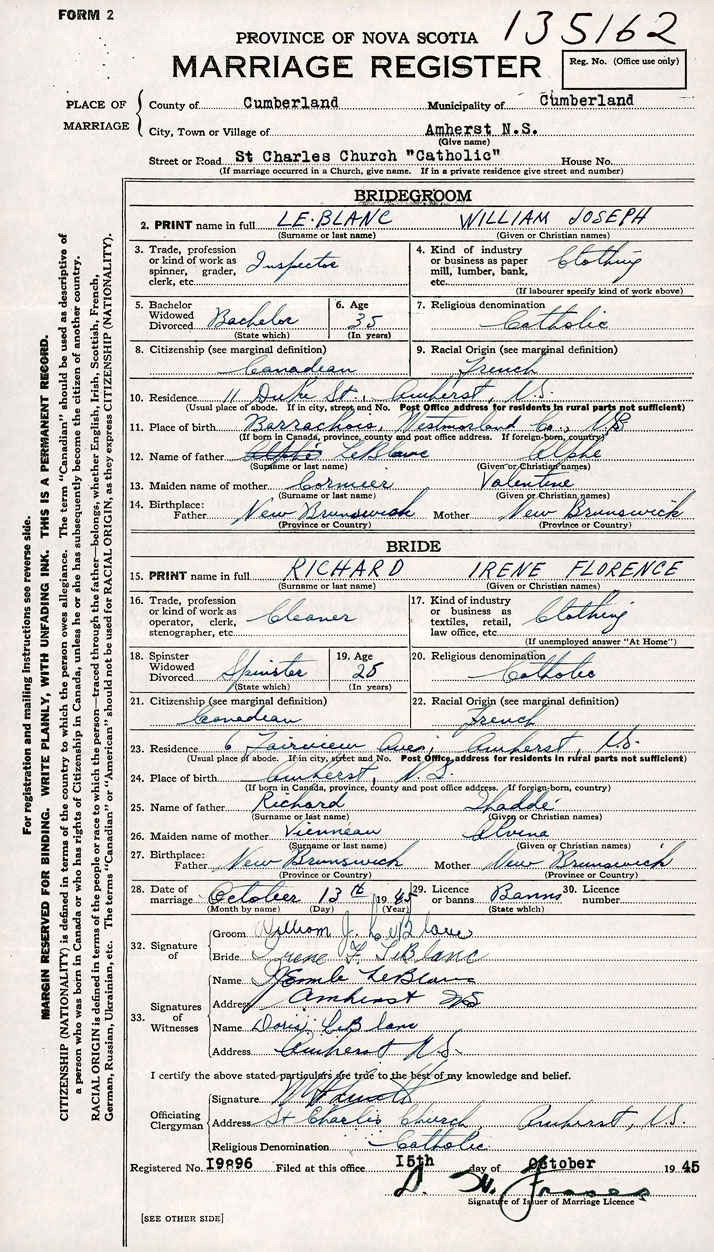 FORM 2
135162
PROVINCE OF NOVA SCOTIA
MARRIAGE REGISTER
Reg. No. (Office use only)
PLACE OF MARRIAGE
County of Cumberland Municipality of Cumberland
City, Town or Village of Amherst N.S.
(Give name)
Street or Road St Charles Church "Catholic" House No.
(If marriage occurred in a Church, give name. If in a private residence give street and number)
BRIDEGROOM
2. PRINT name in full LE BLANC WILLIAM JOSEPH
(Surname or last name) (Given or Christian names)
3. Trade, profession or kind of work as spinner, grader, clerk, etc. Inspector
4. Kind of industry or business as paper mill, lumber, bank, etc. Clothing
(If labourer specify kind of work above)
5. Bachelor Widowed Divorced Bachelor
(State which)
6. Age 35
(In years)
7. Religious denomination Catholic
8. Citizenship (see marginal definition) Canadian
9. Racial Origin (see marginal definition) French
10. Residence 11 Duke St., Amherst, N.S.
(Usual place of abode. If in city, street and No. Post Office address for residents in rural parts not sufficient)
11. Place of birth Barrachois, Westmorland Co., N.B.
(If born in Canada, province, county and post office address. If foreign-born, country)
12. Name of father LeBlanc Alphe
(Surname or last name) (Given or Christian names)
13. Maiden name of mother Cormier Valentine
(Surname or last name) (Given or Christian names)
14. Birthplace: Father New Brunswick Mother New Brunswick
(Province or Country) (Province or Country)
BRIDE
15. PRINT name in full RICHARD IRENE FLORENCE
(Surname or last name) (Given or Christian names)
16. Trade, profession or kind of work as operator, clerk, stenographer, etc. Cleaner
17. Kind of industry or business as textiles, retail, law office, etc. Clothing
(If unemployed answer "At Home")
18. Spinster Widowed Divorced Spinster
(State which)
19. Age 25
(In years)
20. Religious denomination Catholic
21. Citizenship (see marginal definition) Canadian
22. Racial Origin (see marginal definition) French
23. Residence 6 Fairview Ave, Amherst, N.S.
(Usual place of abode. If in city, street and No. Post Office address for residents in rural parts not sufficient)
24. Place of birth Amherst, N.S.
(If born in Canada, province, county and post office address. If foreign-born, country)
25. Name of father Richard Thaddé
(Surname or last name) (Given or Christian names)
26. Maiden name of mother Vienneau Alvina
(Surname or last name) (Given or Christian names)
27. Birthplace: Father New Brunswick Mother New Brunswick
(Province or Country) (Province or Country)
28. Date of marriage October 13th 1945
(Month by name) (Day) (Year)
29. Licence or banns Banns
(State which)
30. Licence number
32. Signature of
Groom William J. LeBlanc
Bride Irene F. LeBlanc
33. Signatures of Witnesses
Name LeBlanc
Address Amherst NS
Name Doris LeBlanc
Address Amherst N.S.
I certify the above stated particulars are true to the best of my knowledge and belief.
Officiating Clergyman
Signature
Address St Charles Church Amherst, N.S.
Religious Denomination Catholic
Registered No. 19896 Filed at this office 15th day of October 1945
D. W. Fraser
Signature of Issuer of Marriage Licence
[SEE OTHER SIDE]
For registration and mailing instructions see reverse side.
MARGIN RESERVED FOR BINDING. WRITE PLAINLY, WITH UNFADING INK. THIS IS A PERMANENT RECORD.
CITIZENSHIP (NATIONALITY) is defined in terms of the country to which the person owes allegiance. The term "Canadian" should be used as descriptive of
a person who was born in Canada or who has rights of Citizenship in Canada, unless he or she has subsequently become the citizen of another country.
RACIAL ORIGIN is defined in terms of the people or race to which the person—traced through the father—belongs, whether English, Irish, Scottish, French,
German, Russian, Ukrainian, etc. The terms "Canadian" or "American" should not be used for RACIAL ORIGIN, as they express CITIZENSHIP (NATIONALITY).